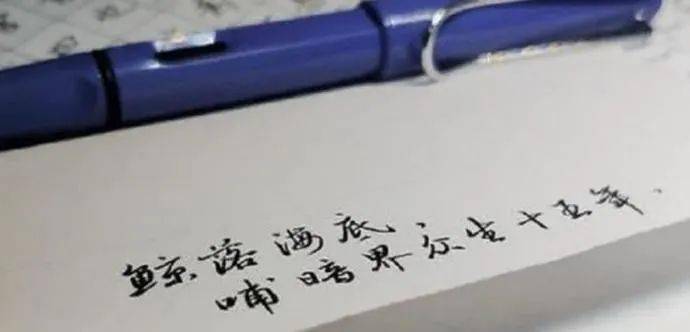 鲸落海底,
哺暗界众生十五年.